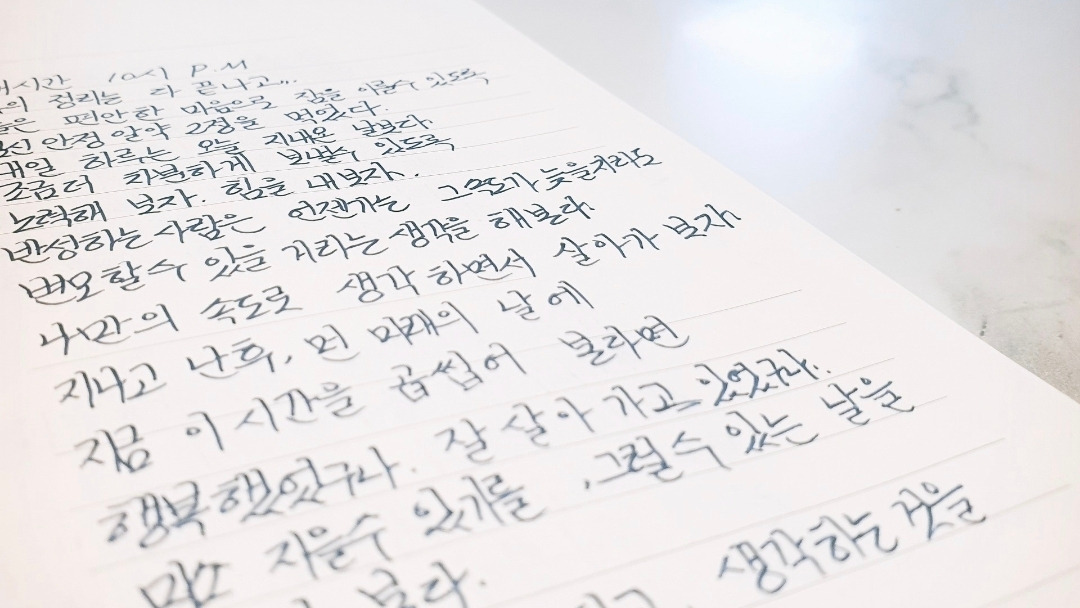 시간 10시 P.M
정리는 다 끝나고...
편안한 마음으로 잠을 이룰수 있도록
안정 알약 2정을 먹었다.
내일 하루는 오늘 지내온 날보다
조금더 차분하게 보낼수 있도록
노력해 보자. 힘을 내보자.
반성하는 사람은 언젠가는 그속도가 늦을지라도
변화할수 있을 거라는 생각을 해본다.
나만의 속도로 생각하면서 살아가 보자
지나고 난후, 먼 미래의 날에
지금 이 시간을 곱씹어 본라면
행복했었구나. 잘 살아 가고 있었구나.
미소 지을수 있기를 , 그럴수 있는 날을
본다.
생각하는 것을